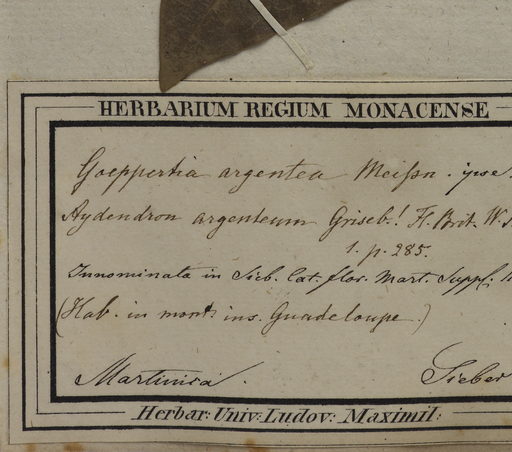 HERBARIUM REGIUM MONACENSE
Goeppertia argentea Meißn. ipse.
Aydendron argenteum Griseb.! Fl. Brit. W.
1. p. 285.
Innominata in Sieb. Cat. flor. Mart. Suppl.
(Hab. in mont. ins. Guadeloupe.)
Martinica.
Sieber
Herbar: Univ: Ludov: Maximil: